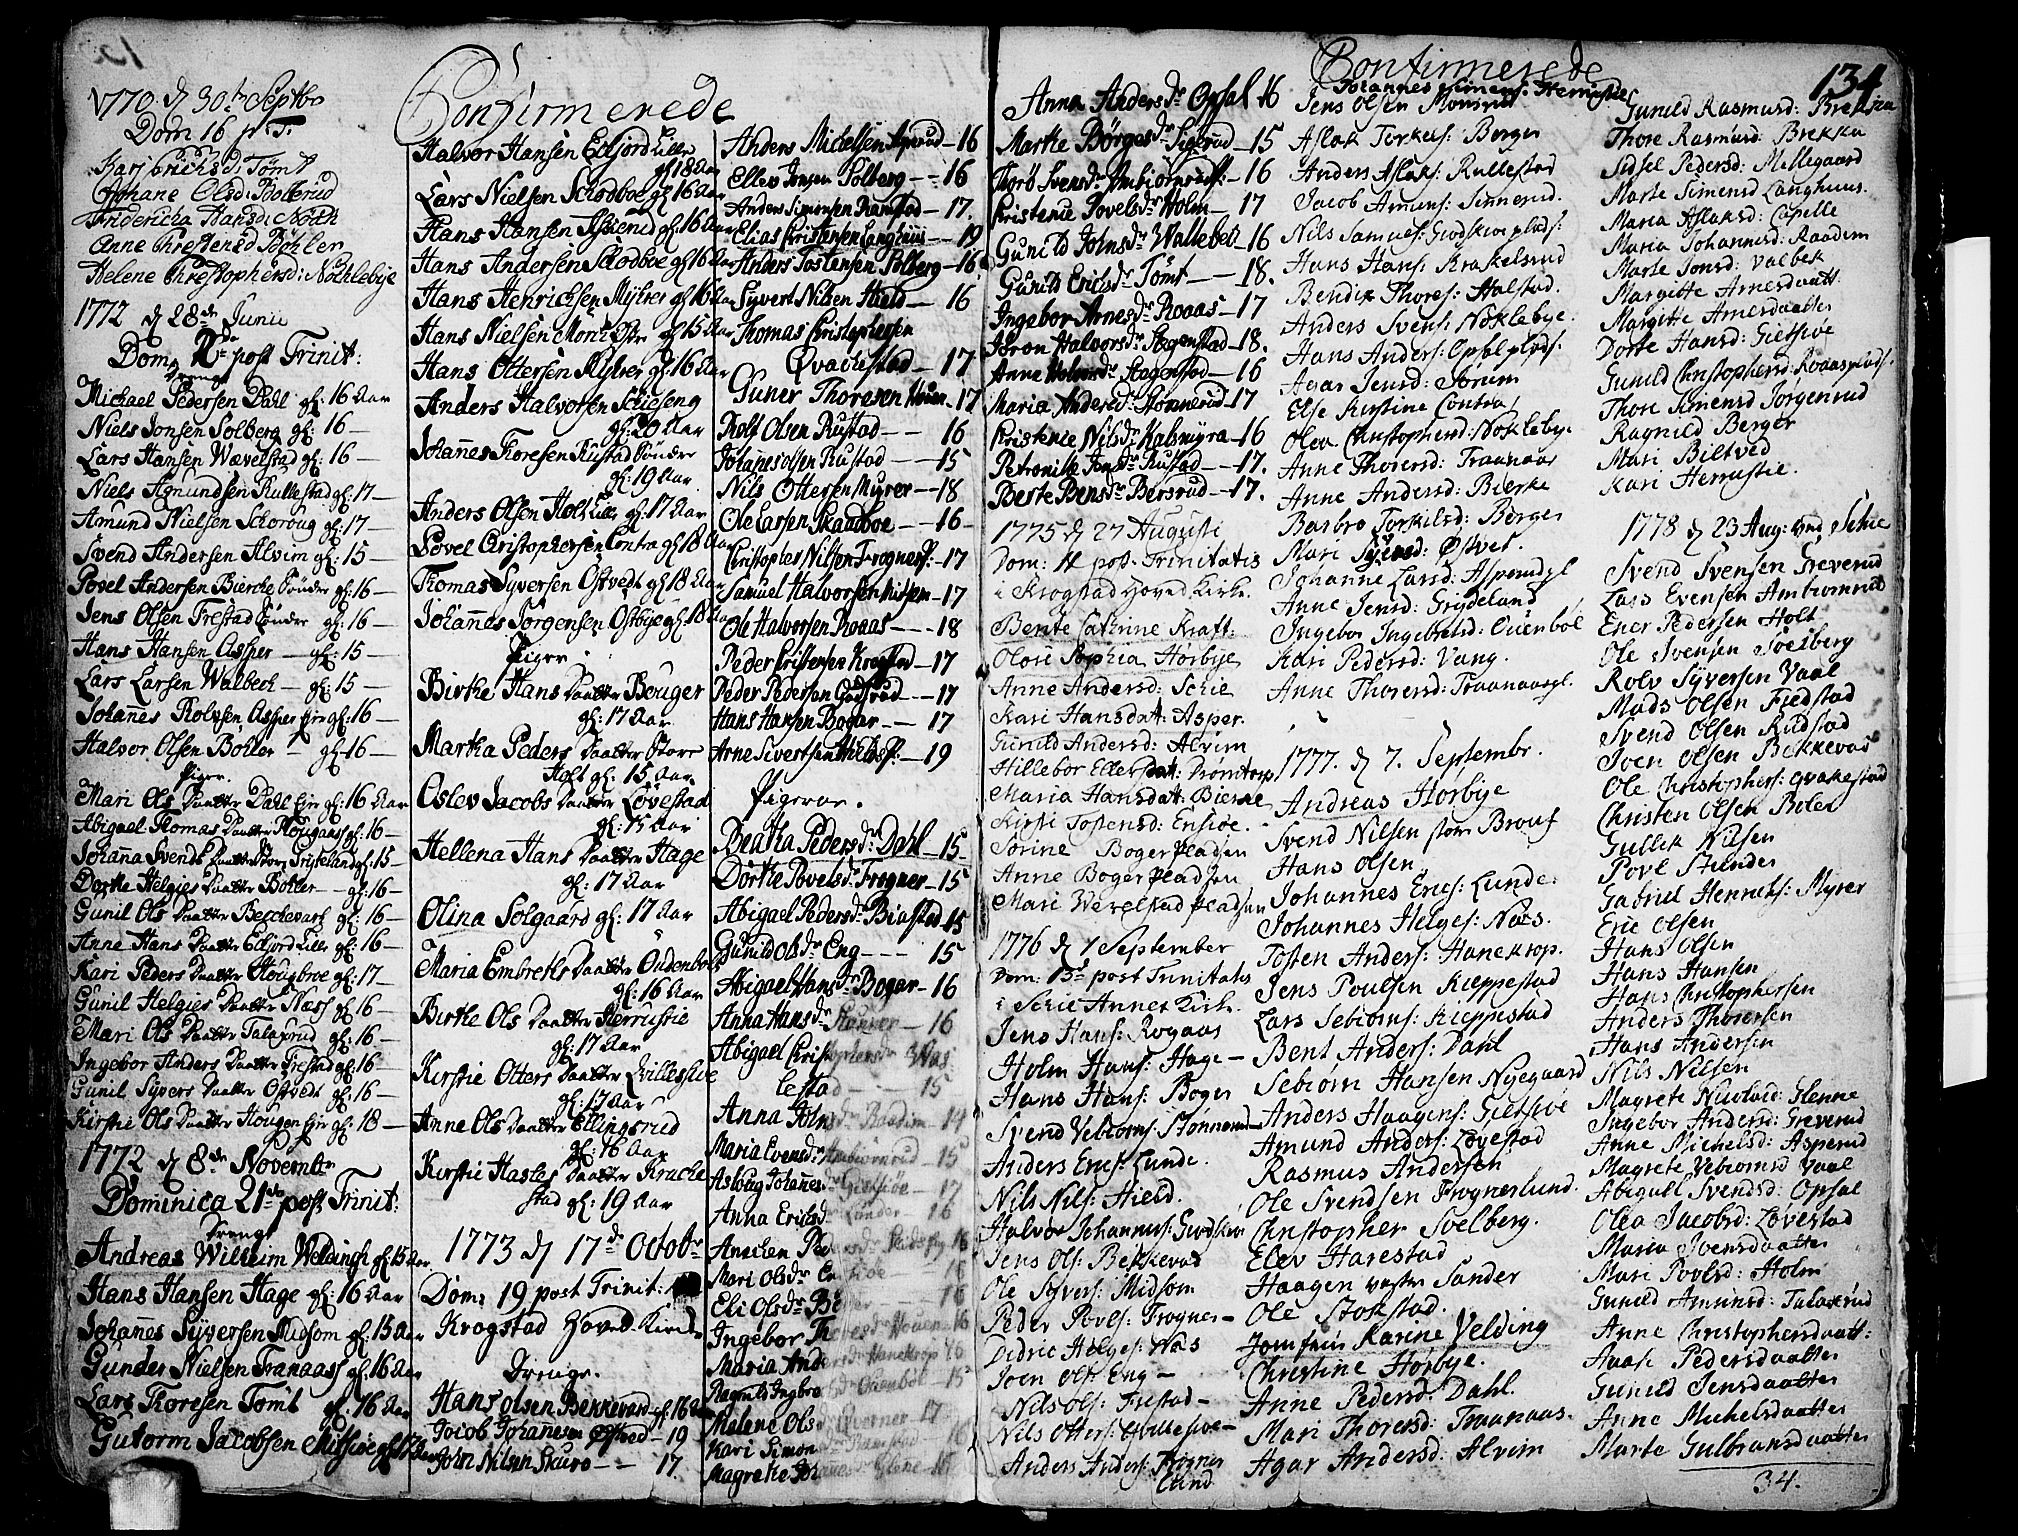 1770 d 30th Septbr
Dom 16 p. T.
Kari Erichsd: Tømt
Johane Olsd: Bøllerud
Fridericha Hansd: Nøth
Anne Chrestensd Bøhler
Helene Chrestophersd: Nøchlebye
1772 d 28de Junii
Dom 2de post Trinit:
Drenge
Michael Pedersen Dahl gl: 16 Aar
Niels Jonsen Solberg gl: 16 —
Lars Hansen Wævelstad gl: 16 —
Niels Amundsen Rullestad gl: 17 —
Amund Nielsen Schoroug gl: 17 —
Svend Andersen Alvim gl: 15 —
Povel Andersen Bierche Sønder gl: 16 —
Jens Olsen Frestad Sønder gl: 16 —
Hans Hansen Asper — gl: 15 —
Lars Larsen Walbech — gl: 15 —
Johannes Rolvsen Asper Eje gl: 16 —
Halvor Olsen Bøhler — gl: 16 —
Piger.
Mari Ols Daatter Dahl Eje gl: 16 Aar
Abigael Thomas Daatter Hougaas gl: 16 —
Johanna Svends Daatter Store gl: 15 —
Dorthe Helgies Daatter Bøhler — gl: 16 —
Gunil Ols Daatter Bechevart gl: 16 —
Anne Hans Daatter Edfjord Lille gl: 16 —
Kari Peders Daatter Hougbroe gl: 17 —
Gunil Helgies Daatter Næss gl: 16 —
Mari Ols Daatter Talaxrud gl: 16 —
Ingebor Anders Daatter Frestad gl: 16 —
Gunil Syvers Daatter Ostvedt gl: 16 —
Kirstie Ols Daatter Hougen Eje gl: 18 —
1772 d 8de Novembr
Dominica 21de post Trinit:
Drenge
Andreas Wilhelm Weldingh gl: 15 Aar
Hans Hansen Hage gl: 16 Aar
Johannes Syversen Midsom gl: 15 Aar
Gunder Nielsen Tranaass gl: 16 Aar
Lars Thoresen Tømt gl: 16 Aar
Gutorm Jacobsen
Confirmerede
Halvor Hansen Edfjord Lille
gl 18 Aar
Lars Nielsen Schodboe gl 16 Aar
Hans Hansen gl 16 Aar
Hans Andersen Schodboe gl 16 Aar
Hans Henrichsen Myhrer gl 16 Aar
Hans Nielsen gl 15 Aar
Hans Ottersen Myhrer gl: 16 Aar
Anders Halvorsen
gl: 20 Aar
Johannes Thoresen Rustad Sønder
gl: 19 Aar
Anders Olsen Holt Lille gl: 17 Aar
Povel Christophersen Contra gl 18 Aar
Thomas Syversen Ostvedt gl 18 Aar
Johannes Jørgensen Ostbye gl 18 Aar
Piger
Birthe Hans Daatter Bouger
gl: 17 Aar
Martha Peders Daatter Store
Holt gl: 15 Aar
Oslev Jacobs Daatter Løvestad
gl: 15 Aar
Hellena Hans Daatter Hage
gl: 17 Aar
Olina Solgaard gl: 17 Aar
Maria Embreths Daatter Oudenbøle
gl: 16 Aar
Birthe Ols Daatter Herrustie
gl: 17 Aar
Kirstie Otters Daatter
gl: 17 Aar
Anne Ols Daatter Ellingsrud
gl: 16 Aar
Kirstie Hasles Daatter Krache
stad gl: 19 Aar
1773 d 17de Octobr
Dom: 19 post Trinit:
Krogstad Hoved Kirche
Drenge.
Hans Olsen Bekkevard gl. 16 Aar
Jocob Johanesen — 19
John Nilsen Skuro — 17
Anders Michelsen — 16
Ellev Jonsen Solberg — 16
Anders Simonsen Ramstad — 17.
Elias Christensen Langhuus — 19
Anders Tostensen Solberg — 16
Syvert Nilsen Hield — 16
Thomas Christophersen
Qvachestad — 17
Guner Thoresen Houen — 17
Rolf Olsen Rustad — 16
Johannes Olsen Rustad — 15
Nils Ottersen Myrer — 18
Ole Larsen Skaadboe — 16
Christopher Nilsen Frogner — 17
Samuel Halvorsen — 17
Ole Halvorsen Roaas — 18
Peder Cristensen Krogstad — 17
Peder Pedersen — 17
Hans Hansen Bogar — 17
Arne Sivertsen — 19
Pigerne.
Beatha Pedersdr Dahl — 15
Dorthe Povelsdr Frogner — 15
Abigael Pedersdr Biastad 15
Gunild Olsdr Eng — 15
Abigael Hansdr Bogar — 16
Anna Hansdr — 16
Abigael
lestad — 15
Anna Johnsdr Raadim — 14
Maria Evensdr Ambiørnrud — 15
Aslaug Johannesdr Gietsiøe — 17
Anna Erichsdr Lunder — 16
Anechen
Mari Olsdr — 16
Eli Olsdr — 16
Ingebor Houen — 16
Maria Andersdr Hanekrop
Ragnild Ouenbøl — 15
Helene Olsdr — 17
Kari Simonsdr Ramstad — 16
Magrethe
Confirmerede
134
Anna Andersdr Opsal 16
Marthe Børgesdr Sigerud — 15
Thorø Svensdr — 16
Christenie Povelsdr Holm — 17
Gunild Johnsdr Wallebek — 16
Gunild Erichsdr Tømt — 18.
Ingebor Arnesdr Roaas — 17
Joron Halvorsdr Stegenstad — 18.
Anne Halvorsdr Stegenstad — 16
Maria Andersdr Stønnerud — 17
Christenie Nilsdr Kalsmyra — 16
Petronille Jonsdr Rustad — 17.
Berte Bensdr Bersrud — 17.
1775 d 27 Augusti
Dom: 11 post Trinitatis
i Krogstad Hoved Kirke.
Bente Cathrine Kraft:
Olore Sophia Hørbye
Anne Andersd: Schie
Kari Hansdatt: Asper.
Gunild Andersd: Alvim
Hillebor Ellefsdatt: Drømtorp
Maria Hansdatt: Bierke
Kirsti Tostensd: Ensiøe.
Sørine Boger Pladsen
Anne Boger Pladsen
Mari Wevelstad pladsen
1776 d 1 September
Dom: 13de post Trinitatis
i Schie Annex Kirke.
Jens Hans: Rogaas
Holm Hans: Hage —
Hans Hans: Boger
Svend Vebiorns: Stønnerud
Anders Erics: Lunde.
Nils Nils: Hield.
Halvor Johannes:
Jens Ols: Bekkevad
Ole Syvers: Midsom
Peder Povls: Frogner —
Didric Helges: Næs
Joen Ols Eng —
Nils Ols: Frestad —
Nils Otters:
Anders Anders: Frogner
Lund
Johannes Simens: Herrustie
Jens Olsen Monsrud
Aslak Torkels: Berger
Anders Aslaks: Rullestad
Jacob Amuns: Sinnerud.
Nils Samuels: Godskiær plads:
Hans Hans: Krakelsrud
Bendix Thores: Halstad.
Anders Svens: Nøklebye.
Hans Anders: Opsal plads:
Agar Jensd: Sørum
Else Kirstine Contra
Olea Christophersd: Nøklebye
Anne Thorersd: Traanaas
Anne Andersd: Bierke
Barbro Torkilsd: Berger
Mari Syversd: Østvet.
Johanne Larsd: Asperudpl
Anne Jensd: Grydeland
Ingebor Ingebretsd: Ouenbøl
Kari Pedersd: Vang.
Anne Thorersd: Traanaaspl.
1777. d 7. Septembr.
Andreas Hørbye
Svend Nilsen
Hans Olsen
Johannes Erics: Lunde
Johannes Helges: Næs.
Tosten Anders: Hanekrop.
Jens Poulsen Kieppestad
Lars Sebiorns: Kieppestad
Bent Anders: Dahl
Sebiørn Hansen Nyegaard
Anders Haagens: Gietsiøe
Amund Anders: Løvestad
Rasmus Andersen
Ole Svendsen Frognerlund.
Christopher Svelberg.
Elev Harestad
Haagen vester Sander
Ole Stokstad.
Jomfrue Karine Velding
Christine Hørbye.
Anne Pedersd: Dahl.
Mari Thorersd: Traanaas.
Agar Andersd: Alvim
Gunild Rasmusd: Brekka
Thore Rasmusd: Brekka
Sidsel Pedersd: Mellegaard
Marte Simensd Langhuus.
Maria Aslaksd: Capelle
Maria Johannesd: Raadim
Marte Jonsd: Valbek
Margitte Arnesdaatt:
Margitte Arnesdaatter
Dorte Hansd: Gietsiøe
Gunild Christophersd: Roaasplads:
Thore Simensd Jørgenrud
Ragnild Berger
Mari Biltved
Kari Herrustie.
1778 d 23 Aug: ved Schie
Svend Svensen Greverud
Lars Evensen Ambiornrud
Ener Pedersen Holt
Ole Svensen Soelberg
Rolv Syversen Vaal
Mads Olsen Fiedstad
Svend Olsen Rudstad
Joen Olsen Bekkevad
Ole Christophers: Qvakestad
Christen Olsen Boler
Gullek Nilsen
Povl Stender
Gabriel Henrichs: Myrer
Eric Olsen
Hans Olsen
Hans Hansen
Hans Christophersen
Anders Thorersen
Hans Andersen
Nils Nilsen
Magrete Nicolaid: Glenne
Ingebor Andersd: Greverud
Anne Michelsd: Asperud
Magrete Vebiornsd Vaal
Abigaël Svendsd: Opsal
Olea Jacobsd: Løvestad
Maria Svensdaatter
Mari Povelsd: Holm
Gunild Amunsd: Talaxrud
Anne Christophersdaatt:
Aase Pedersdaatter
Gunild Jensdaatter
Anne Michelsdaatter
Marte Gulbransdaatter
34.